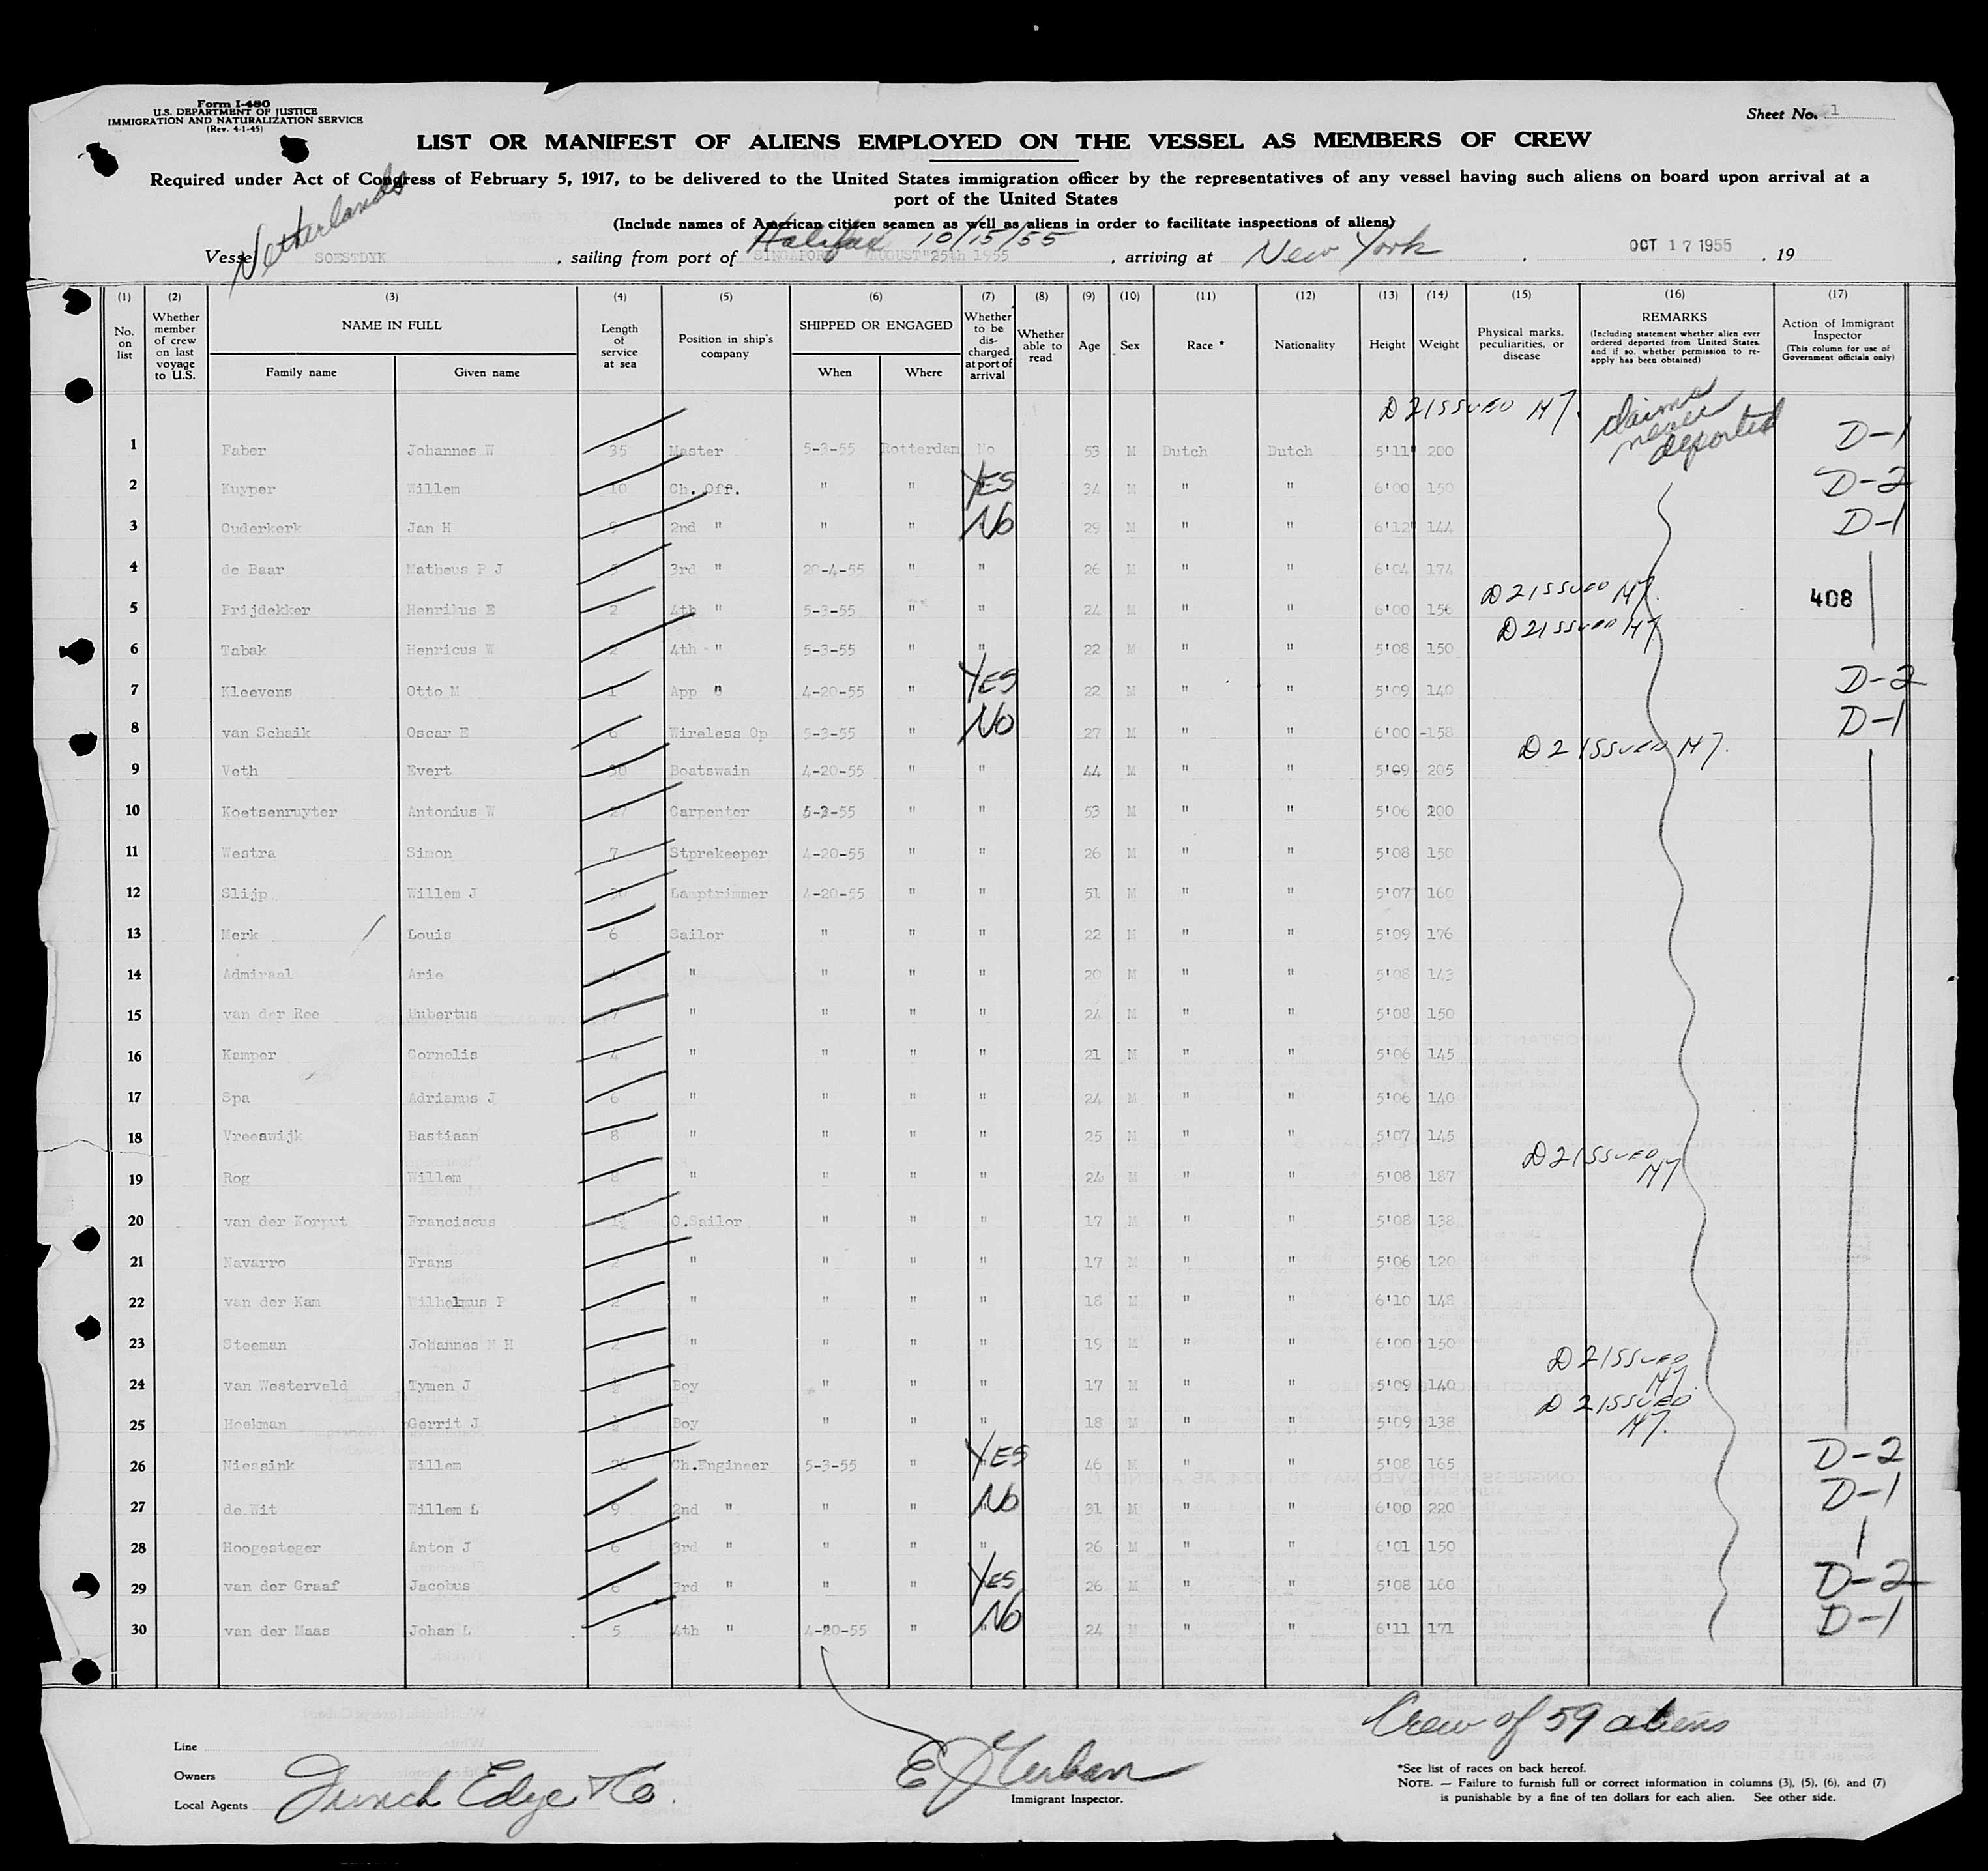 Form I-480
U.S. DEPARTMENT OF JUSTICE
IMMIGRATION AND NATURALIZATION SERVICE
(Rev. 4-1-45)
Sheet No. 1
LIST OR MANIFEST OF ALIENS EMPLOYED ON THE VESSEL AS MEMBERS OF CREW
Required under Act of Congress of February 5, 1917, to be delivered to the United States immigration officer by the representatives of any vessel having such aliens on board upon arrival at a
port of the United States
(Include names of American citizen seamen as well as aliens in order to facilitate inspections of aliens)
Netherlands
Halifax 10/15/55
Vessel SOESTDYK, sailing from port of SINGAPORE AUGUST 25th 1955, arriving at New York, OCT 17 1955, 19
(1) (2) (3) (4) (5) (6) (7) (8) (9) (10) (11) (12) (13) (14) (15) (16) (17)
No. on list
Whether member of crew on last voyage to U.S.
NAME IN FULL
Family name Given name
Length of service at sea
Position in ship's company
SHIPPED OR ENGAGED
When Where
Whether to be discharged at port of arrival
Whether able to read
Age
Sex
Race *
Nationality
Height
Weight
Physical marks, peculiarities, or disease
REMARKS
(Including statement whether alien ever ordered deported from United States, and if so, whether permission to re-apply has been obtained)
Action of Immigrant Inspector
(This column for use of Government officials only)
D2 ISSUED H7. claims never deported
1 Faber Johannes W 35 Master 5-3-55 Rotterdam No 53 M Dutch Dutch 5'11" 200 D-1
2 Kuyper Willem 10 Ch. Off. " " YES 34 M " " 6'00 150 D-2
3 Ouderkerk Jan H 9 2nd " " " No 29 M " " 6'12" 144 D-1
4 de Baar Matheus P J 3rd " 20-4-55 " " 26 M " " 6'04 174
5 Prijdekker Henrikus E 2 4th " 5-3-55 " " 24 M " " 6'00 156 D2 ISSUED H7. 408
6 Tabak Henricus W 2 4th " 5-3-55 " " 22 M " " 5'08 150 D2 ISSUED H7
7 Kleevens Otto M 1 App " 4-20-55 " YES 22 M " " 5'09 140 D-2
8 van Schaik Oscar E 6 Wireless Op 5-3-55 " No 27 M " " 6'00 -158 D-1
9 Veth Evert 30 Boatswain 4-20-55 " " 44 M " " 5'09 205 D2 ISSUED H7.
10 Koetsenruyter Antonius W 27 Carpenter 5-3-55 " " 53 M " " 5'06 200
11 Westra Simon 7 Stprekeeper 4-20-55 " " 26 M " " 5'08 150
12 Slijp Willem J 30 Lamptrimmer 4-20-55 " " 51 M " " 5'07 160
13 Merk Louis 6 Sailor " " " 22 M " " 5'09 176
14 Admiraal Arie " " " " 20 M " " 5'08 143
15 van der Ree Hubertus 7 " " " " 24 M " " 5'08 150
16 Kamper Cornelis 4 " " " " 21 M " " 5'06 145
17 Spa Adrianus J 6 " " " " 24 M " " 5'06 140
18 Vreeswijk Bastiaan 8 " " " " 25 M " " 5'07 145
19 Rog Willem 8 " " " " 24 M " " 5'08 187 D2 ISSUED H7
20 van der Korput Franciscus 1½ O.Sailor " " " 17 M " " 5'08 138
21 Navarro Frans 2 " " " " 17 M " " 5'06 120
22 van der Kam Wilhelmus P 2 " " " " 18 M " " 6'10 148
23 Steeman Johannes N H 2 " " " " 19 M " " 6'00 150
24 van Westerveld Tymen J ½ Boy " " " 17 M " " 5'09 140 D2 ISSUED H7.
25 Hoekman Gerrit J ½ Boy " " " 18 M " " 5'09 138 D2 ISSUED H7.
26 Niessink Willem 26 Ch.Engineer 5-3-55 " YES 46 M " " 5'08 165 D-2
27 de Wit Willem L 9 2nd " " " No 31 M " " 6'00 220 D-1
28 Hoogesteger Anton J 6 3rd " " " " 26 M " " 6'01 150
29 van der Graaf Jacobus 6 3rd " " " Yes 26 M " " 5'08 160 D-2
30 van der Maas Johan L 5 4th " 4-20-55 " No 24 M " " 6'11 171 D-1
Crew of 59 aliens
Line
Owners
Local Agents Funch Edye & Co.
Immigrant Inspector.
*See list of races on back hereof.
NOTE. — Failure to furnish full or correct information in columns (3), (5), (6), and (7)
is punishable by a fine of ten dollars for each alien. See other side.